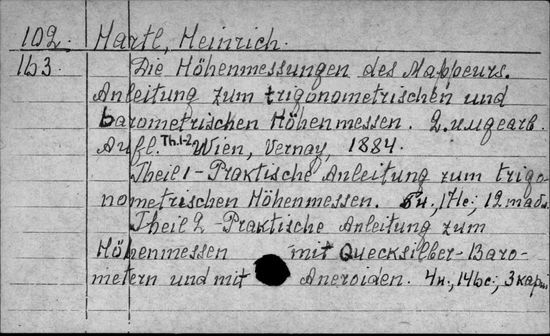 102. Hartl, Heinrich.
163. Die Höhenmessungen des Mappeurs.
Anleitung zum trigonometrischen und
barometrischen Höhenmessen. 2. umgearb.
Aufl. Th.1-2. Wien, Vernay, 1884.
Theil 1 - Praktische Anleitung zum trigo-
nometrischen Höhenmessen. н., 174с; 12 табл.
Theil 2 - Praktische Anleitung zum
Höhenmessen mit Quecksilber-Baro-
metern und mit Aneroiden. 4н., 146с; 3 карт.